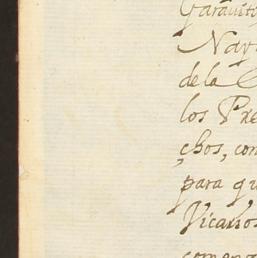 Garauito
Nava
de la C
los Pre
chos, con
para qu
Vicarios